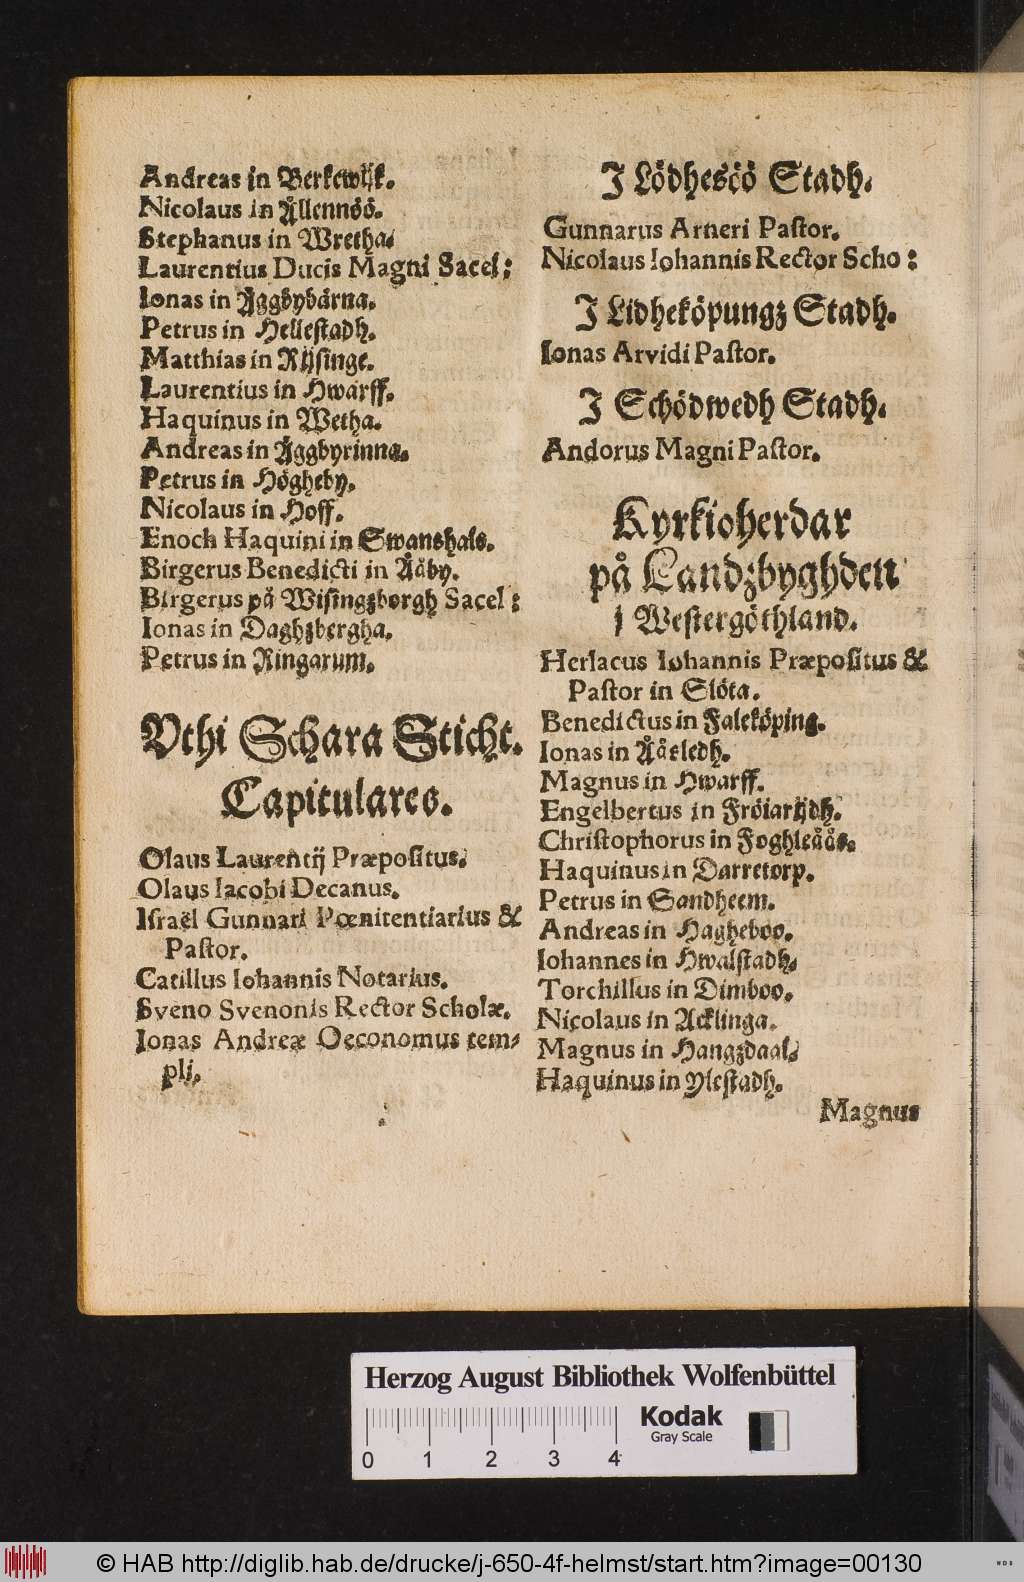 Andreas in Berkewijk.
Nicolaus in Ållennöö.
Stephanus in Wretha.
Laurentius Ducis Magni Sacel:
Ionas in Äggbybärna.
Petrus in Hellestadh.
Matthias in Rijsinge.
Laurentius in Hwarff.
Haquinus in Wetha.
Andreas in Äggbyrinna.
Petrus in Högheby.
Nicolaus in Hoff.
Enoch Haquini in Swanshals.
Birgerus Benedicti in Ååby.
Birgerus på Wisingzborgh Sacel:
Ionas in Daghzbergha.
Petrus in Ringarum.
Vthi Schara Sticht.
Capitulares.
Olaus Laurentij Præpositus.
Olaus Iacobi Decanus.
Israël Gunnari Pœnitentiarius &
Pastor.
Catillus Iohannis Notarius.
Sveno Svenonis Rector Scholæ.
Ionas Andreæ Oeconomus tem-
pli.
J Lödhesöö Stadh.
Gunnarus Arneri Pastor.
Nicolaus Iohannis Rector Scho:
J Lidheköpungz Stadh.
Ionas Arvidi Pastor.
J Schödwedh Stadh.
Andorus Magni Pastor.
Kyrkioherdar
på Landzbyghden
j Westergöthland.
Herlacus Iohannis Præpositus &
Pastor in Slöta.
Benedictus in Faleköping.
Ionas in Ååsledh.
Magnus in Hwarff.
Engelbertus in Fröiarijdh.
Christophorus in Foghleåås.
Haquinus in Darretorp.
Petrus in Sandheem.
Andreas in Hagheboo.
Iohannes in Hwalstadh.
Torchillus in Dimboo.
Nicolaus in Acklinga.
Magnus in Hangzdaal.
Haquinus in Ylestadh.
Magnus
Herzog August Bibliothek Wolfenbüttel
0 1 2 3 4
Kodak
Gray Scale
© HAB http://diglib.hab.de/drucke/j-650-4f-helmst/start.htm?image=00130